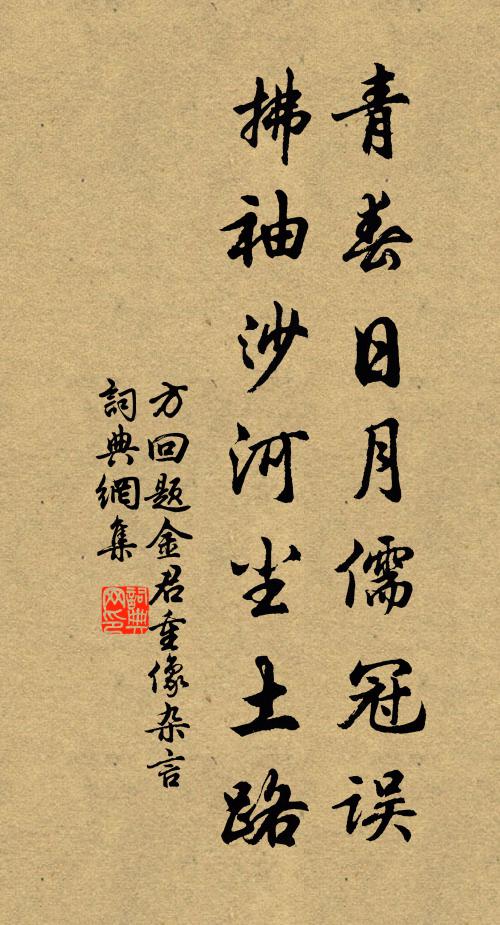 青春日月儒冠误
拂袖沙河尘土路
方回题金君重像杂言
詞典網集
詞典网印